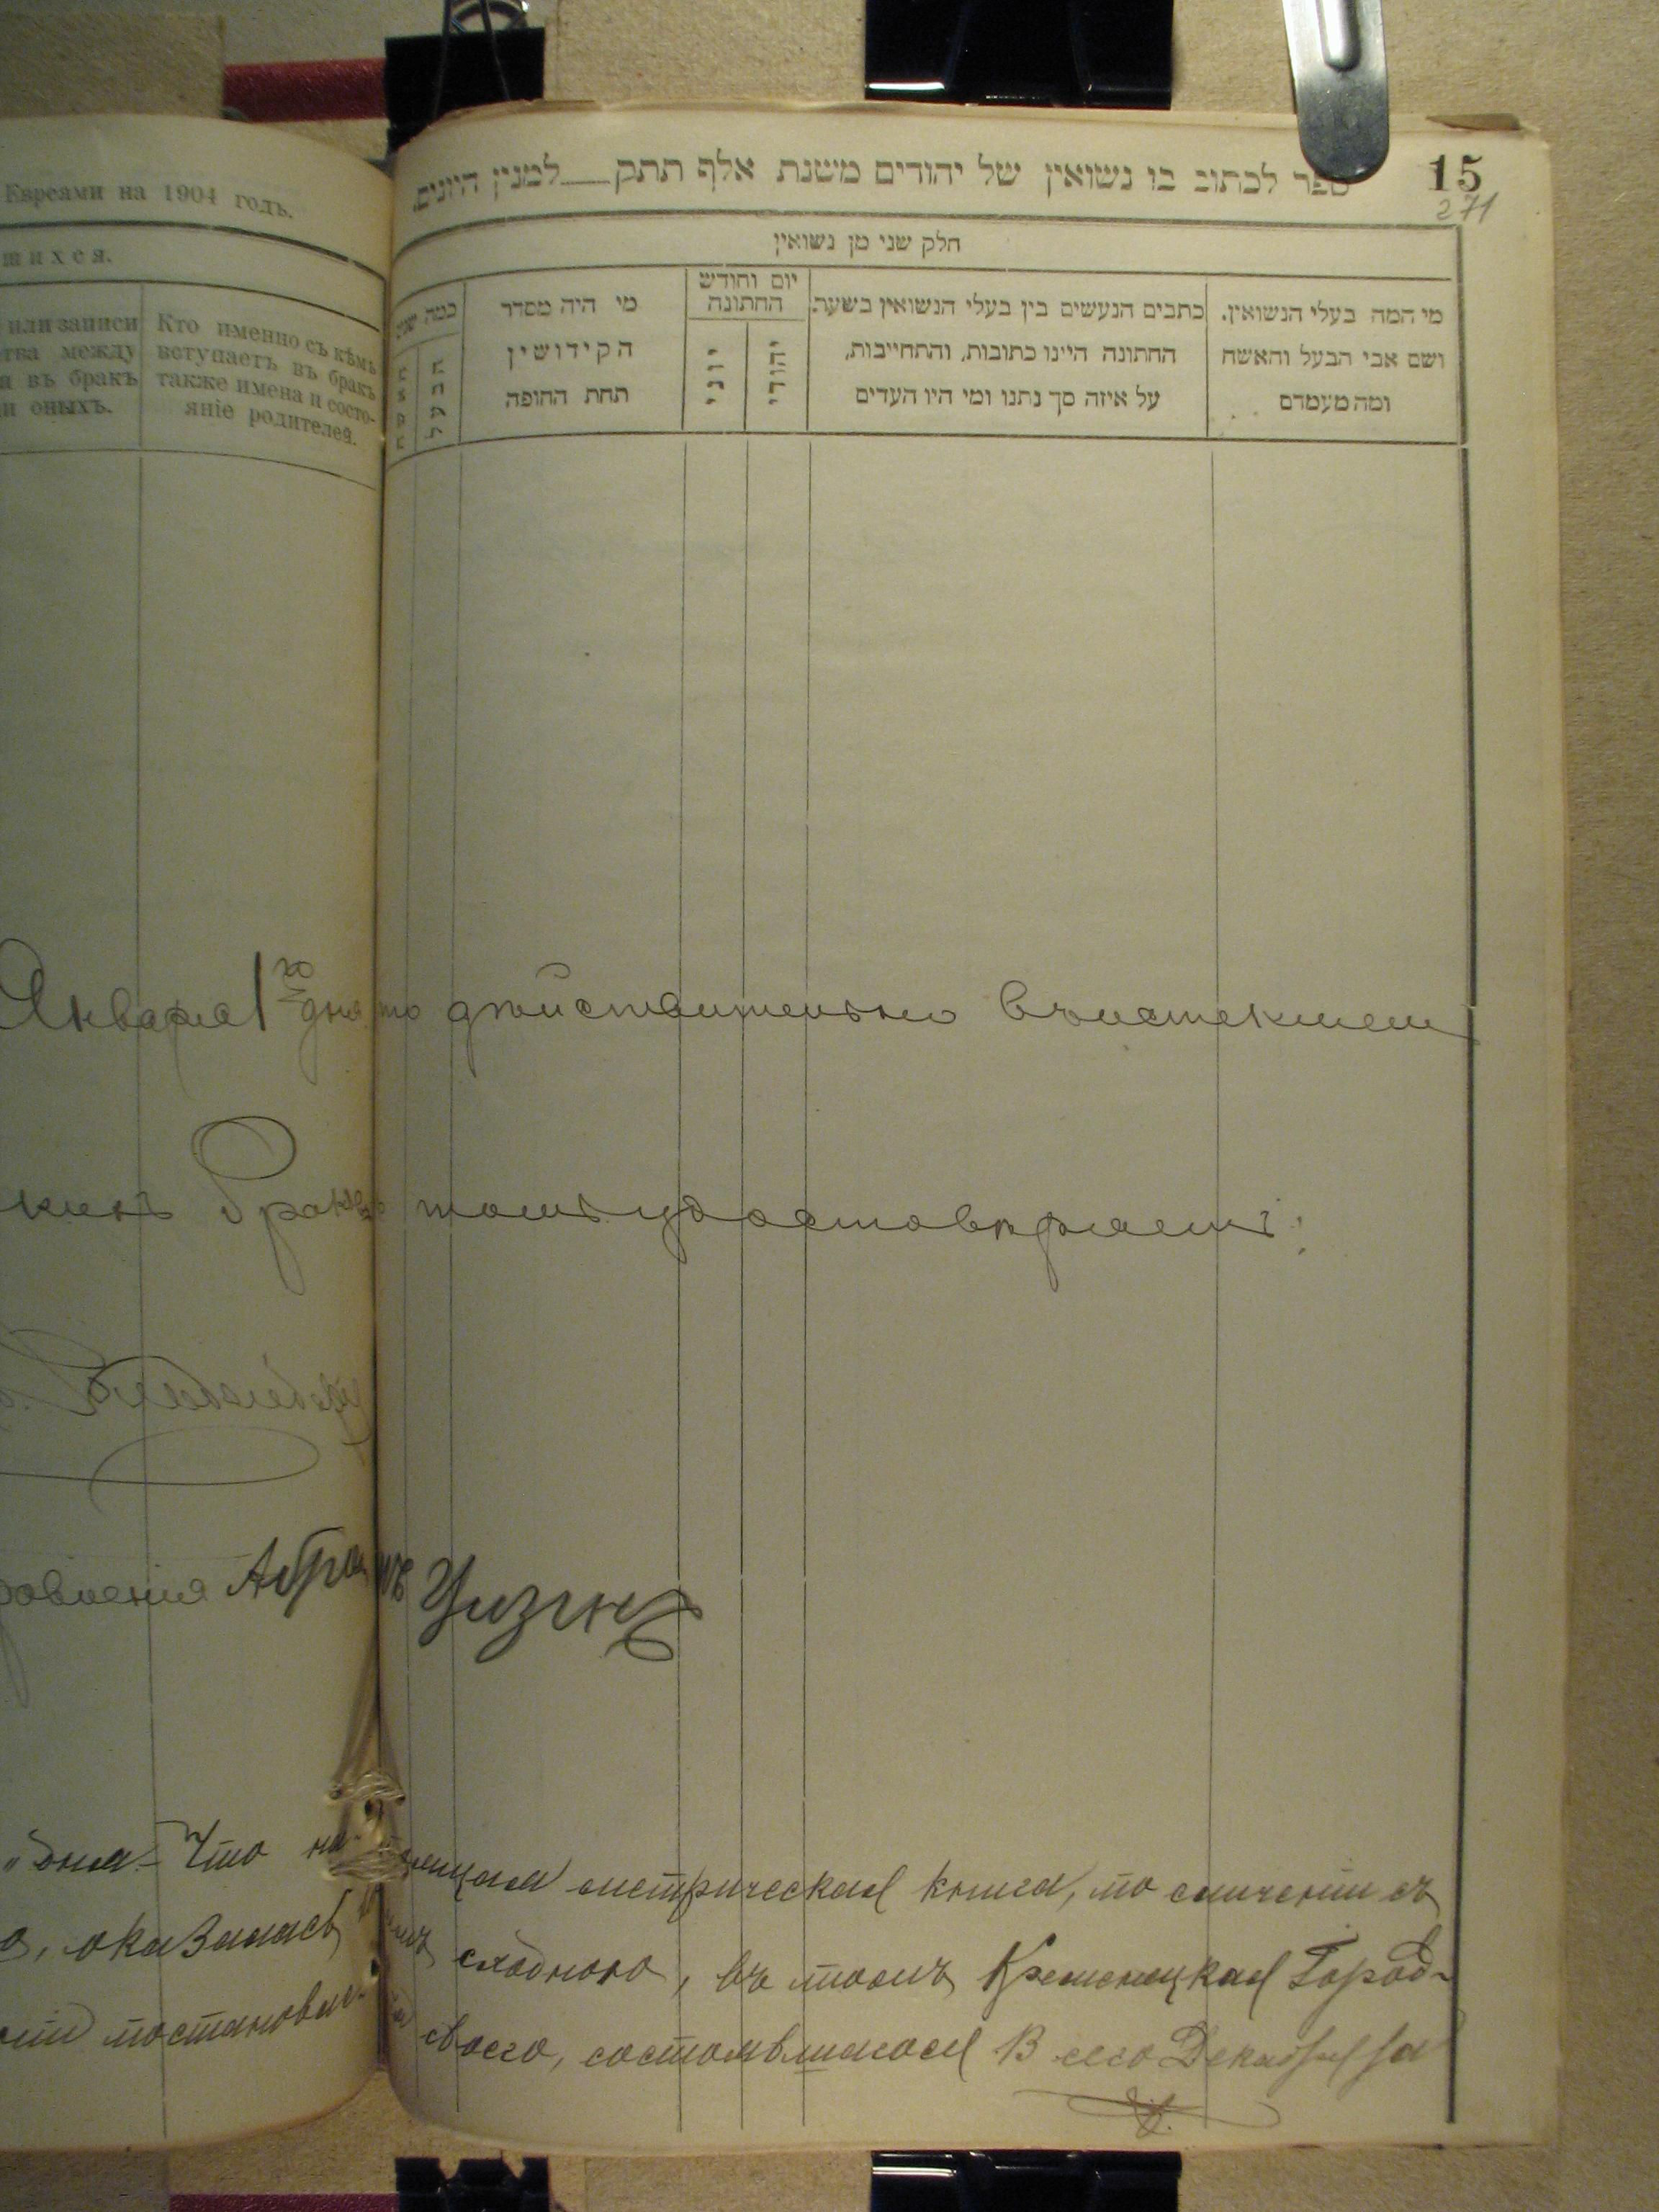 Евреями на 1904 годъ.
шихся.
или записи
тва между
я въ бракъ
и оныхъ.
Кто именно съ кѣмъ
вступаетъ въ бракъ
также имена и состо-
яніе родителей.
15
271
ספר לכתוב בו נשואין של יהודים משנת אלף תתק___למנין היונים.
חלק שני מן נשואין
מי המה בעלי הנשואין.
ושם אבי הבעל והאשה
ומה מעמדם
כתבים הנעשים בין בעלי הנשואין בשעת
החתונה היינו כתובות, והתחייבות,
על איזה סך נתנו ומי היו העדים
יום וחודש
החתונה
יהודי
יוני
מי היה מסדר
הקידושין
תחת החופה
כמה שנים
הבעל
האשה
Января 1го дня, то дѣйствительно въ истекшем
томъ удостовѣряетъ:
Абрамъ Цизинъ
дня. Что настоящая метрическая книга, по сличеніи съ
оказалась сходною, въ томъ Кременецкая Город-
постановле- своего, состоявшагося 13 сего Декабря за